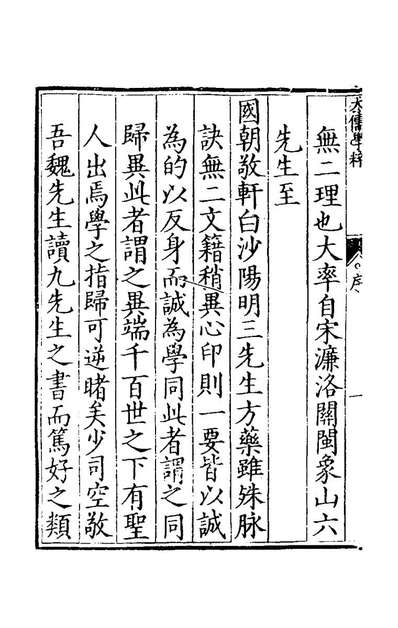 大儒學粹
序
一
無二理也大率自宋濂洛關閩象山六
先生至
國朝敬軒白沙陽明三先生方藥雖殊脉
訣無二文籍稍異心印則一要皆以誠
為的以反身而誠為學同此者謂之同
歸異此者謂之異端千百世之下有聖
人出焉學之指歸可逆睹矣少司空敬
吾魏先生讀九先生之書而篤好之類